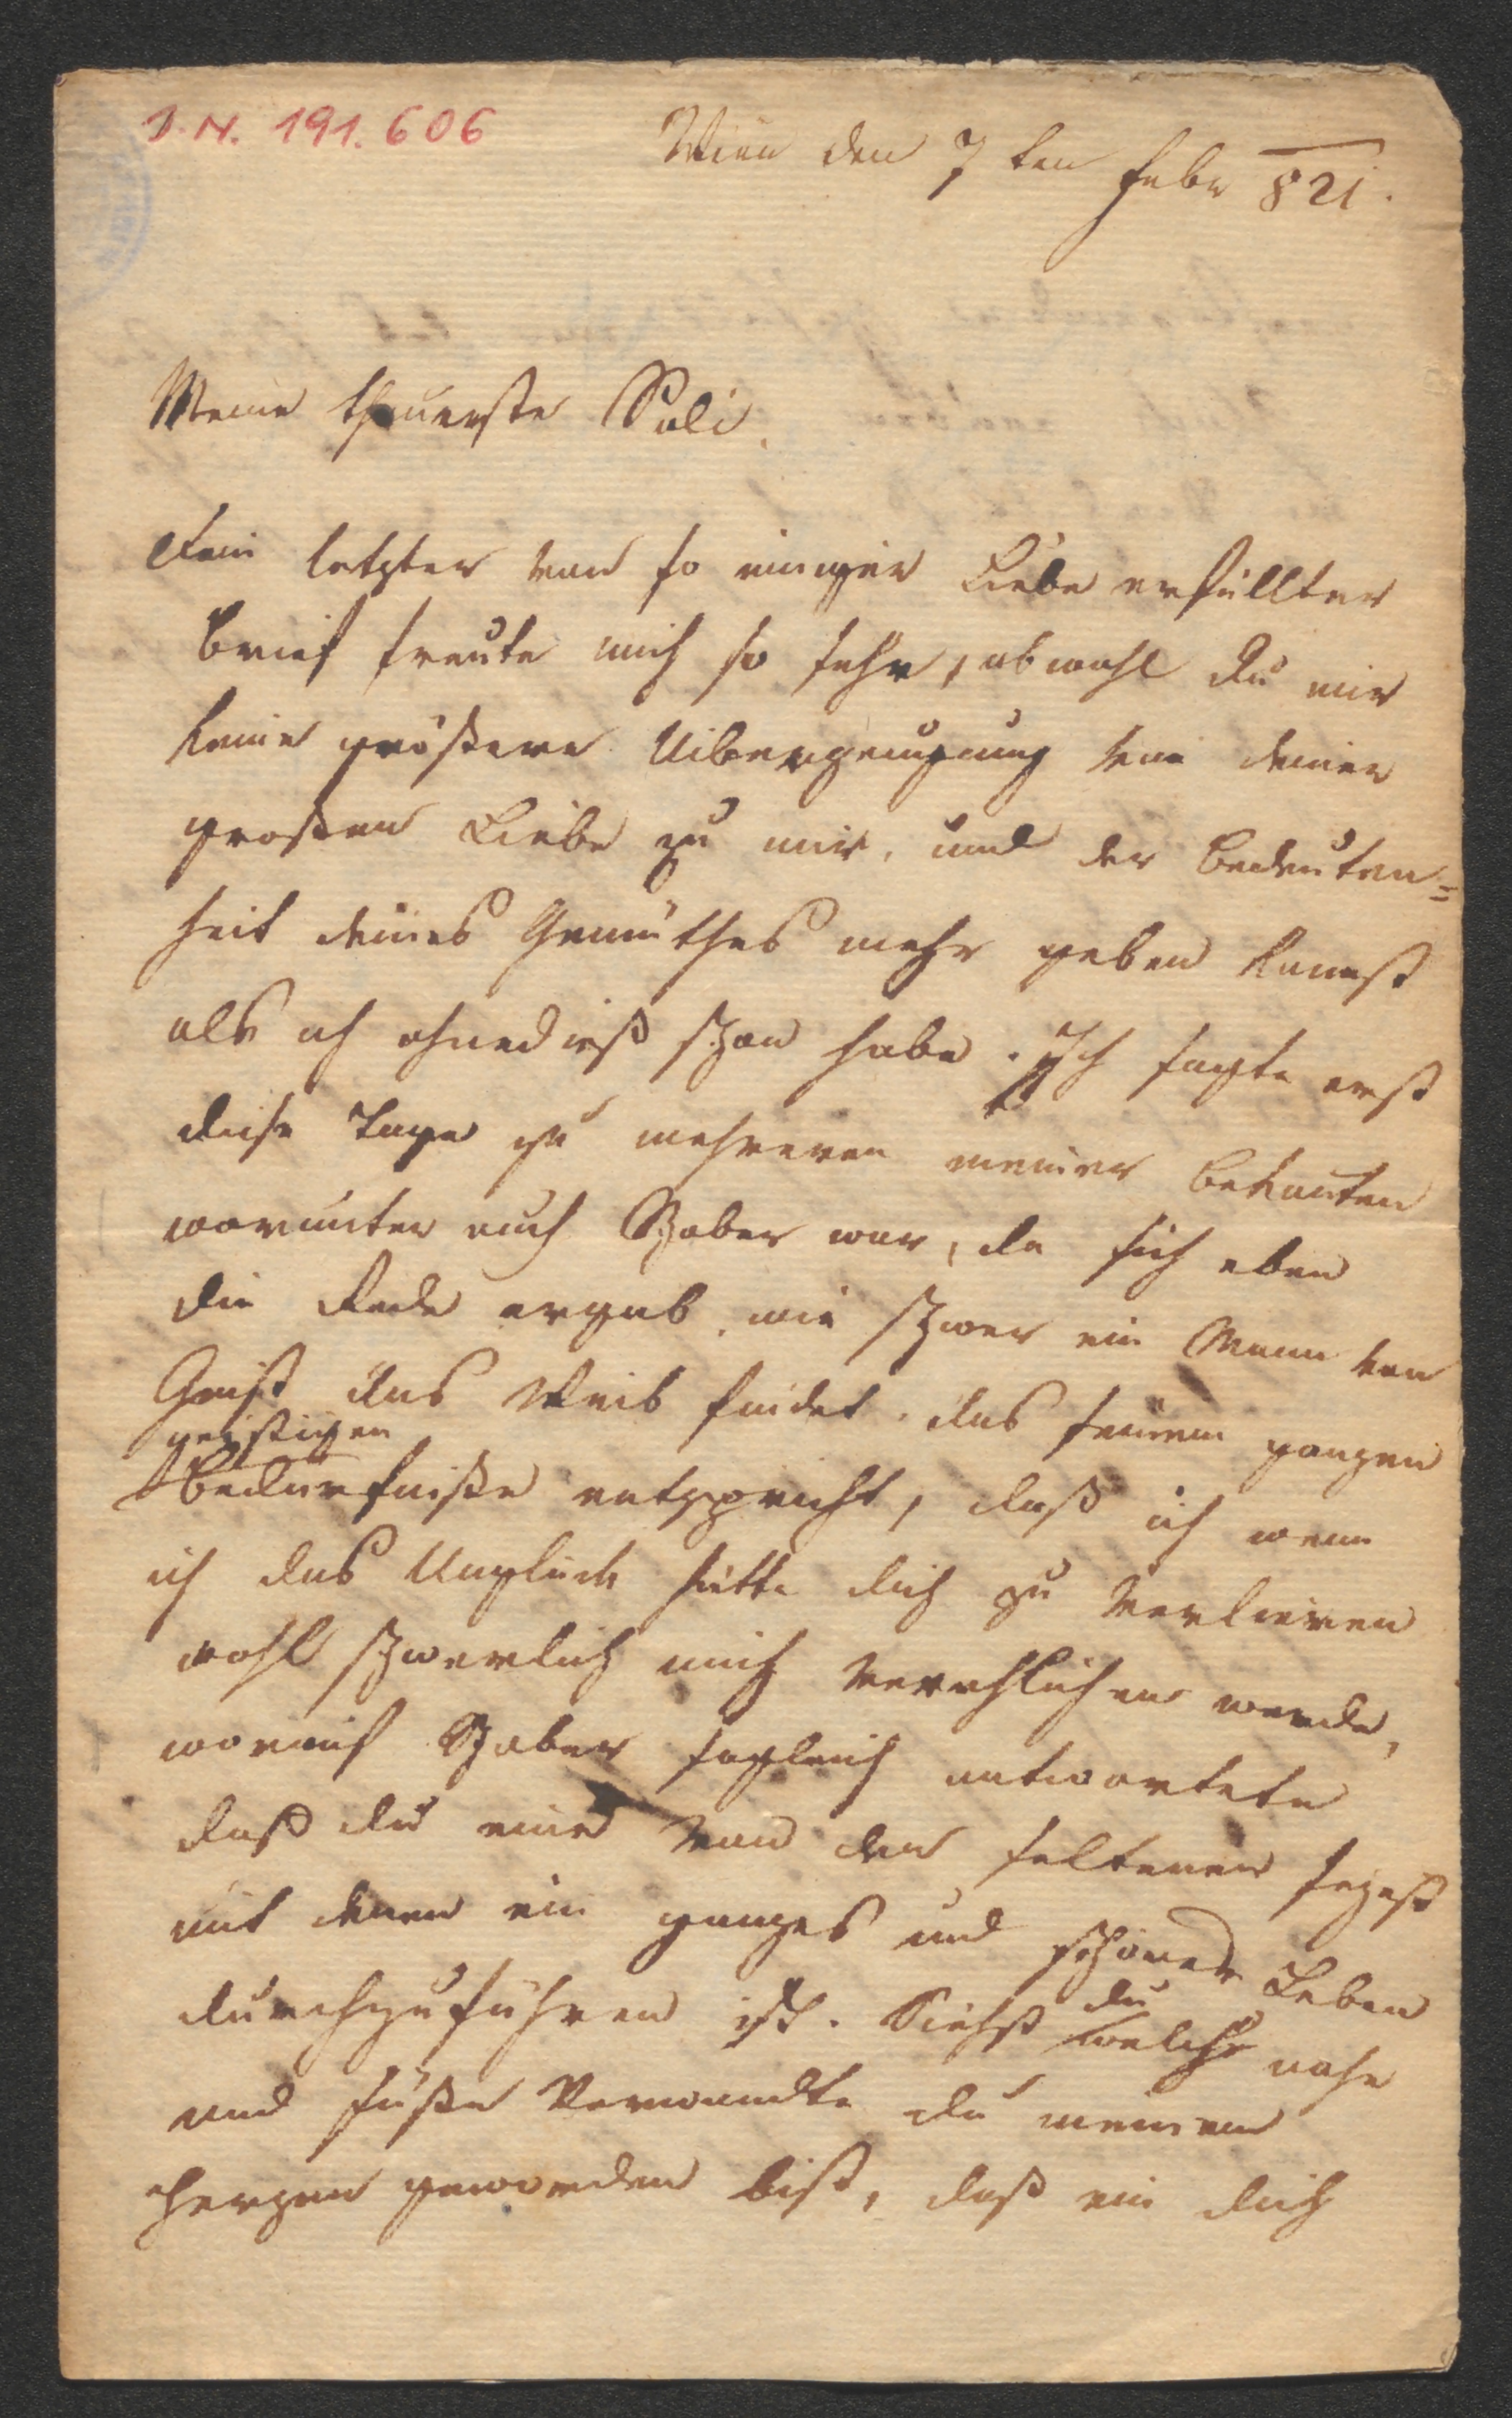 I. N. 191.606
Wien den 7ten Febr 821.
Meine theuerste Sali
Dein letzter von so inniger Liebe erfüllter
Brief freute mich so sehr, obwohl du mir
keine größere Uiberzeugung von deiner
großen Liebe zu mir, und der Bedeuten=
heit deines Gemüthes mehr geben kannst
als ich ohnedieß schon habe. Ich sagte erst
diese Tage zu mehreren meiner Bekannten
worunter auch Schober war, da sich eben
die Rede ergab, wie schwer ein Mann von
Geist das Weib findet, das seinem ganzen
geistigen
Bedürfniße entspricht, daß ich wenn
ich das Unglück hätte dich zu verlieren
wohl schwerlich mich verehlichen werde,
worauf Schober sogleich antwortete
daß du eine von den seltenen seyest
mit denen ein ganzes und schönes Leben
durchzuführen ist. Siehst du welche nahe
und süße Verwandte du meinem
Herzen geworden bist, daß ein dich